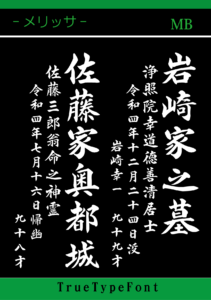 -メリッサ-
MB
岩崎家之墓
浄照院幸道德善清居士
令和四年十二月二十四日没
岩崎幸一 九十九才
佐藤家奥都城
佐藤三郎翁命之神霊
令和四年七月十六日帰幽
九十八才
TrueTypeFont